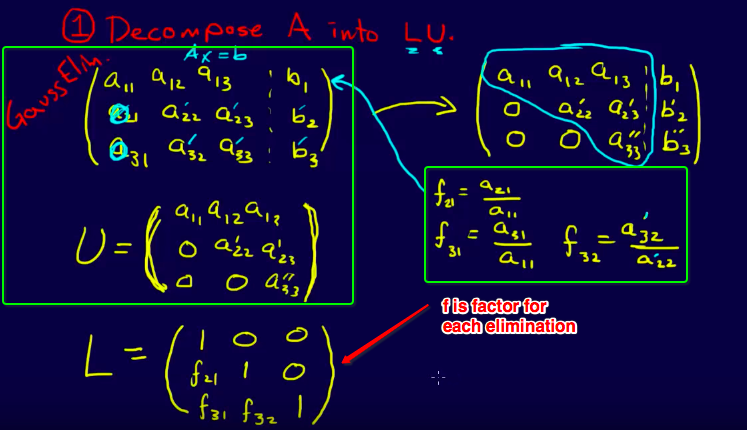 ① Decompose A into LU.
Gauss Elim.
Ax = b
a11 a12 a13 | b1
a21 a'22 a'23 | b'2
a31 a'32 a'33 | b'3
a11 a12 a13 | b1
0 a'22 a'23 | b'2
0 0 a''33 | b''3
U = ( a11 a12 a13
0 a'22 a'23
0 0 a''33 )
f21 = a21 / a11
f31 = a31 / a11 f32 = a'32 / a'22
f is factor for
each elimination
L = ( 1 0 0
f21 1 0
f31 f32 1 )